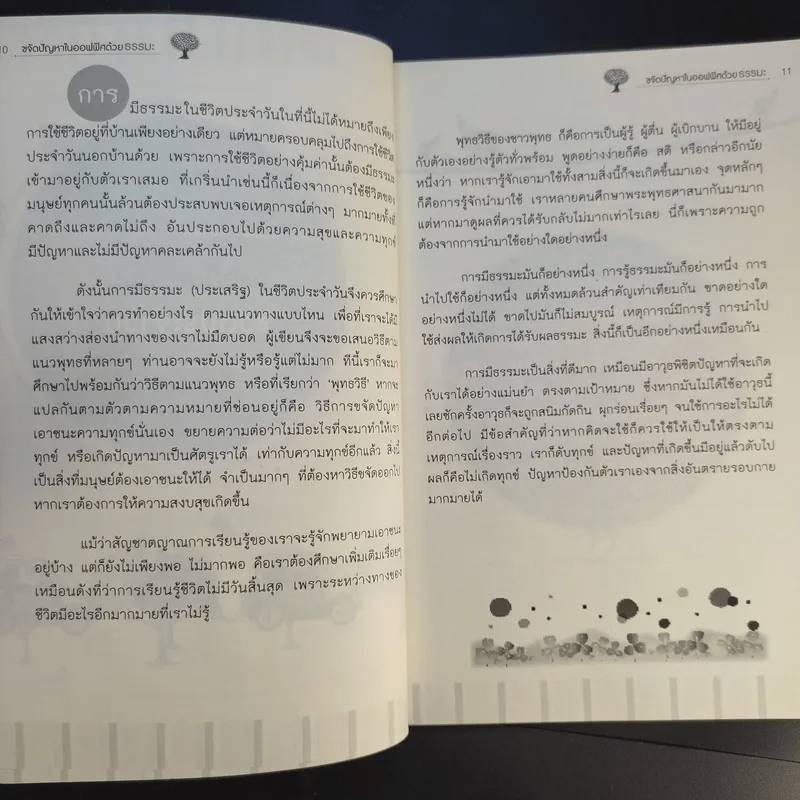 10 ขจัดปัญหาในออฟฟิศด้วยธรรมะ
การ
มีธรรมะในชีวิตประจำวันในที่นี้ไม่ได้หมายถึงเพียง
การใช้ชีวิตอยู่ที่บ้านเพียงอย่างเดียว แต่หมายครอบคลุมไปถึงการใช้ชีวิต
ประจำวันนอกบ้านด้วย เพราะการใช้ชีวิตอย่างคุ้มค่านั้นต้องมีธรรมะ
เข้ามาอยู่กับตัวเราเสมอ ที่เกริ่นนำเช่นนี้ก็เนื่องจากการใช้ชีวิตของ
มนุษย์ทุกคนนั้นล้วนต้องประสบพบเจอเหตุการณ์ต่างๆ มากมายทั้งที่
คาดถึงและคาดไม่ถึง อันประกอบไปด้วยความสุขและความทุกข์
มีปัญหาและไม่มีปัญหาคละเคล้ากันไป
ดังนั้นการมีธรรมะ (ประเสริฐ) ในชีวิตประจำวันจึงควรศึกษา
กันให้เข้าใจว่าควรทำอย่างไร ตามแนวทางแบบไหน เพื่อที่เราจะได้มี
แสงสว่างส่องนำทางของเราไม่มืดบอด ผู้เขียนจึงจะขอเสนอวิธีตาม
แนวพุทธที่หลายๆ ท่านอาจจะยังไม่รู้หรือรู้แต่ไม่มาก ทีนี้เราก็จะมา
ศึกษาไปพร้อมกันว่าวิธีตามแนวพุทธ หรือที่เรียกว่า 'พุทธวิธี' หากจะ
แปลกันตามตัวตามความหมายที่ซ่อนอยู่ก็คือ วิธีการขจัดปัญหา
เอาชนะความทุกข์นั่นเอง ขยายความต่อว่าไม่มีอะไรที่จะมาทำให้เรา
ทุกข์ หรือเกิดปัญหามาเป็นศัตรูเราได้ เท่ากับความทุกข์อีกแล้ว สิ่งนี้
เป็นสิ่งที่มนุษย์ต้องเอาชนะให้ได้ จำเป็นมากๆ ที่ต้องหาวิธีขจัดออกไป
หากเราต้องการให้ความสงบสุขเกิดขึ้น
แม้ว่าสัญชาตญาณการเรียนรู้ของเราจะรู้จักพยายามเอาชนะ
อยู่บ้าง แต่ก็ยังไม่เพียงพอ ไม่มากพอ คือเราต้องศึกษาเพิ่มเติมเรื่อยๆ
เหมือนดังที่ว่าการเรียนรู้ชีวิตไม่มีวันสิ้นสุด เพราะระหว่างทางของ
ชีวิตมีอะไรอีกมากมายที่เราไม่รู้
ขจัดปัญหาในออฟฟิศด้วยธรรมะ 11
พุทธวิธีของชาวพุทธ ก็คือการเป็นผู้รู้ ผู้ตื่น ผู้เบิกบาน ให้มีอยู่
กับตัวเองอย่างรู้ตัวทั่วพร้อม พูดอย่างง่ายก็คือ สติ หรือกล่าวอีกนัย
หนึ่งว่า หากเรารู้จักเอามาใช้ทั้งสามสิ่งนี้ก็จะเกิดขึ้นมาเอง จุดหลักๆ
ก็คือการรู้จักนำมาใช้ เราหลายคนศึกษาพระพุทธศาสนากันมามาก
แต่หากมาดูผลที่ควรได้รับกลับไม่มากเท่าไรเลย นี่ก็เพราะความถูก
ต้องจากการนำมาใช้อย่างใดอย่างหนึ่ง
การมีธรรมะมันก็อย่างหนึ่ง การรู้ธรรมะมันก็อย่างหนึ่ง การ
นำไปใช้ก็อย่างหนึ่ง แต่ทั้งหมดล้วนสำคัญเท่าเทียมกัน ขาดอย่างใด
อย่างหนึ่งไม่ได้ ขาดไปมันก็ไม่สมบูรณ์ เหตุการณ์มีการรู้ การนำไป
ใช้ส่งผลให้เกิดการได้รับผลธรรมะ สิ่งนี้ก็เป็นอีกอย่างหนึ่งเหมือนกัน
การมีธรรมะเป็นสิ่งที่ดีมาก เหมือนมีอาวุธพิชิตปัญหาที่จะเกิด
กับเราได้อย่างแม่นยำ ตรงตามเป้าหมาย ซึ่งหากมันไม่ได้ใช้อาวุธนี้
เลยซักครั้งอาวุธก็จะถูกสนิมกัดกิน ผุกร่อนเรื่อยๆ จนใช้การอะไรไม่ได้
อีกต่อไป มีข้อสำคัญที่ว่าหากคิดจะใช้ก็ควรใช้ให้เป็นให้ตรงตาม
เหตุการณ์เรื่องราว เราก็ดับทุกข์ และปัญหาที่เกิดขึ้นมีอยู่แล้วดับไป
ผลก็คือไม่เกิดทุกข์ ปัญหาป้องกันตัวเราเองจากสิ่งอันตรายรอบกาย
มากมายได้